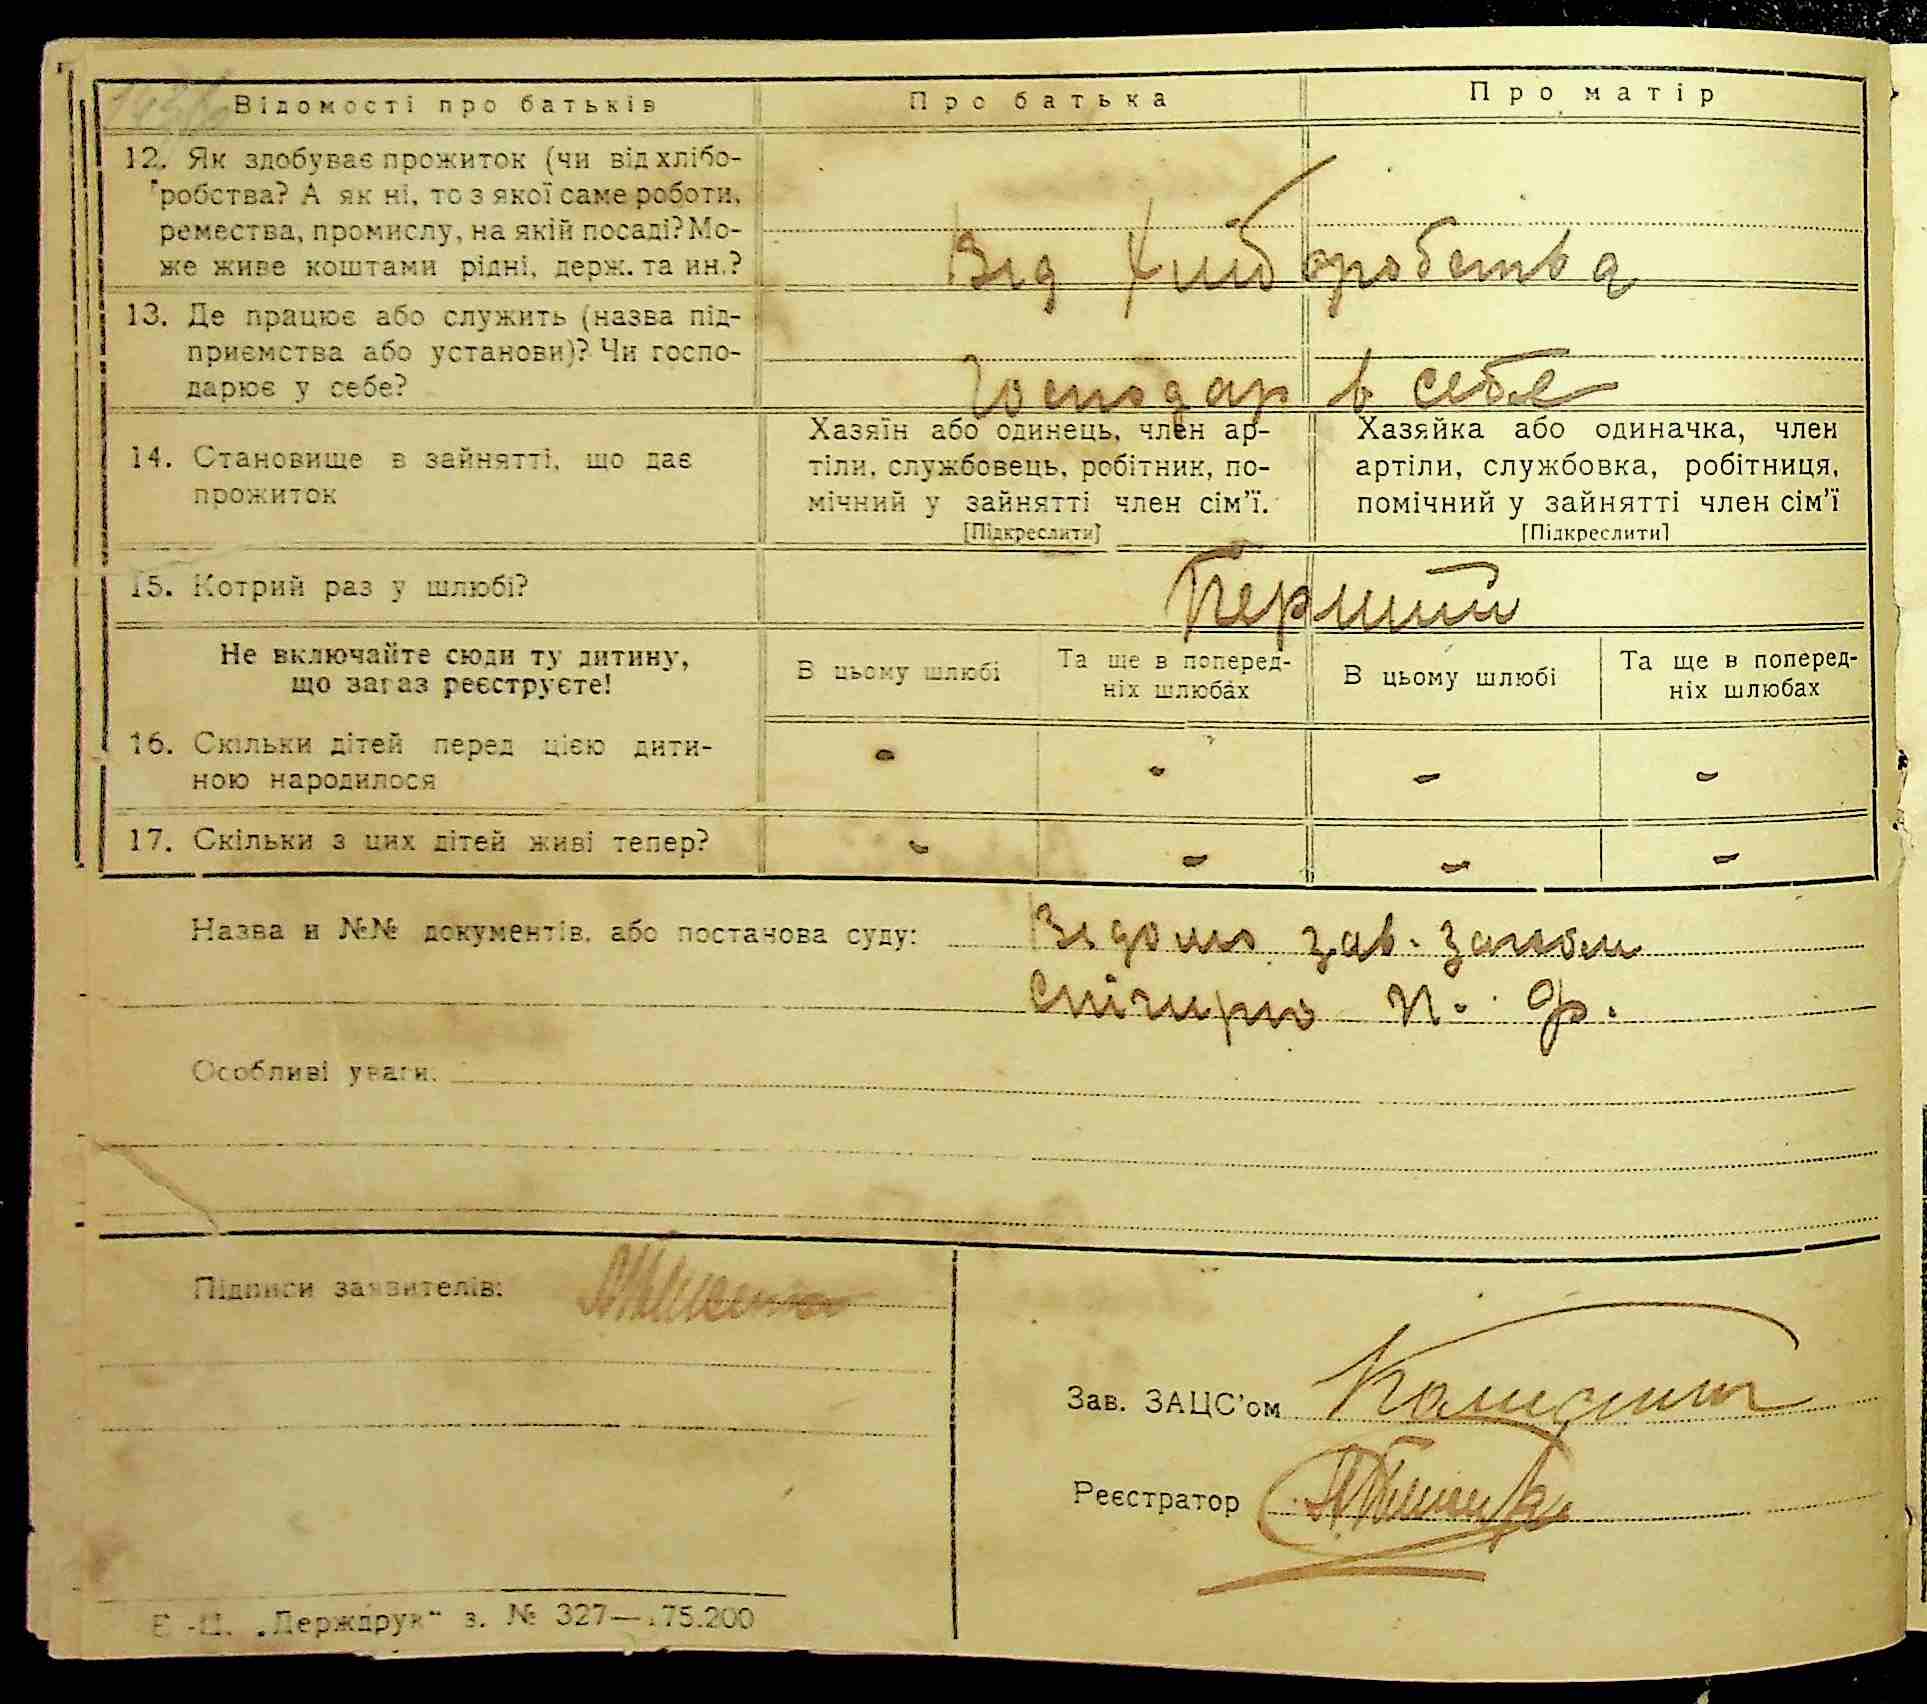 Відомості про батьків
Про батька
Про матір
12. Як здобуває прожиток (чи від хлібо-
робства? А як ні, то з якої саме роботи,
ремества, промислу, на якій посаді? Мо-
же живе коштами рідні, держ. та ин.?
Від хліборобства
13. Де працює або служить (назва під-
приємства або установи)? Чи госпо-
дарює у себе?
Господар в себе
14. Становище в зайнятті, що дає
прожиток
Хазяїн або одинець, член ар-
тіли, службовець, робітник, по-
мічний у зайнятті член сім’ї.
[Підкреслити]
Хазяйка або одиначка, член
артіли, службовка, робітниця,
помічний у зайнятті член сім’ї
[Підкреслити]
15. Котрий раз у шлюбі?
Перший
Не включайте сюди ту дитину,
що зараз реєструєте!
В цьому шлюбі
Та ще в поперед-
ніх шлюбах
В цьому шлюбі
Та ще в поперед-
ніх шлюбах
16. Скільки дітей перед цією дити-
ною народилося
- - - -
17. Скільки з цих дітей живі тепер?
- - - -
Назва и №№ документів, або постанова суду:
Відомо зав.
П. Ф.
Особливі уваги:
Підписи заявителів:
Зав. ЗАЦС’ом
Реєстратор
„Держдрук“ з. № 327—175.200